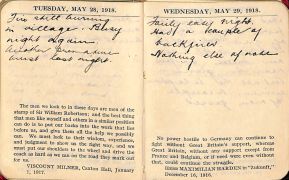 TUESDAY, MAY 28, 1918.
Fire still burning
in village. Busy
night again.
Another gun
last night.
The men we look to in these days are men of the
stamp of Sir William Robertson; and the best thing
that men like myself and others in a similar position
can do is to put our backs into the work that lies
before us, and give them all the help we possibly
can. We must look to their wisdom, experience,
and judgment to show us the right way, and we
must put our shoulders to the wheel and drive the
coach as hard as we can on the road they mark out
for us.
VISCOUNT MILNER, Canton Hall, January
7, 1917.
WEDNESDAY, MAY 29, 1918.
Fairly easy night.
Had a couple of
backfires
Nothing else of note
No power hostile to Germany can continue to
fight without Great Britain's support, whereas
Great Britain, without any support, except from
France and Belgium, or if need were even without
that, could continue the struggle.
HERR MAXIMILIAN HARDEN in "Zukunft,"
December 16, 1916.